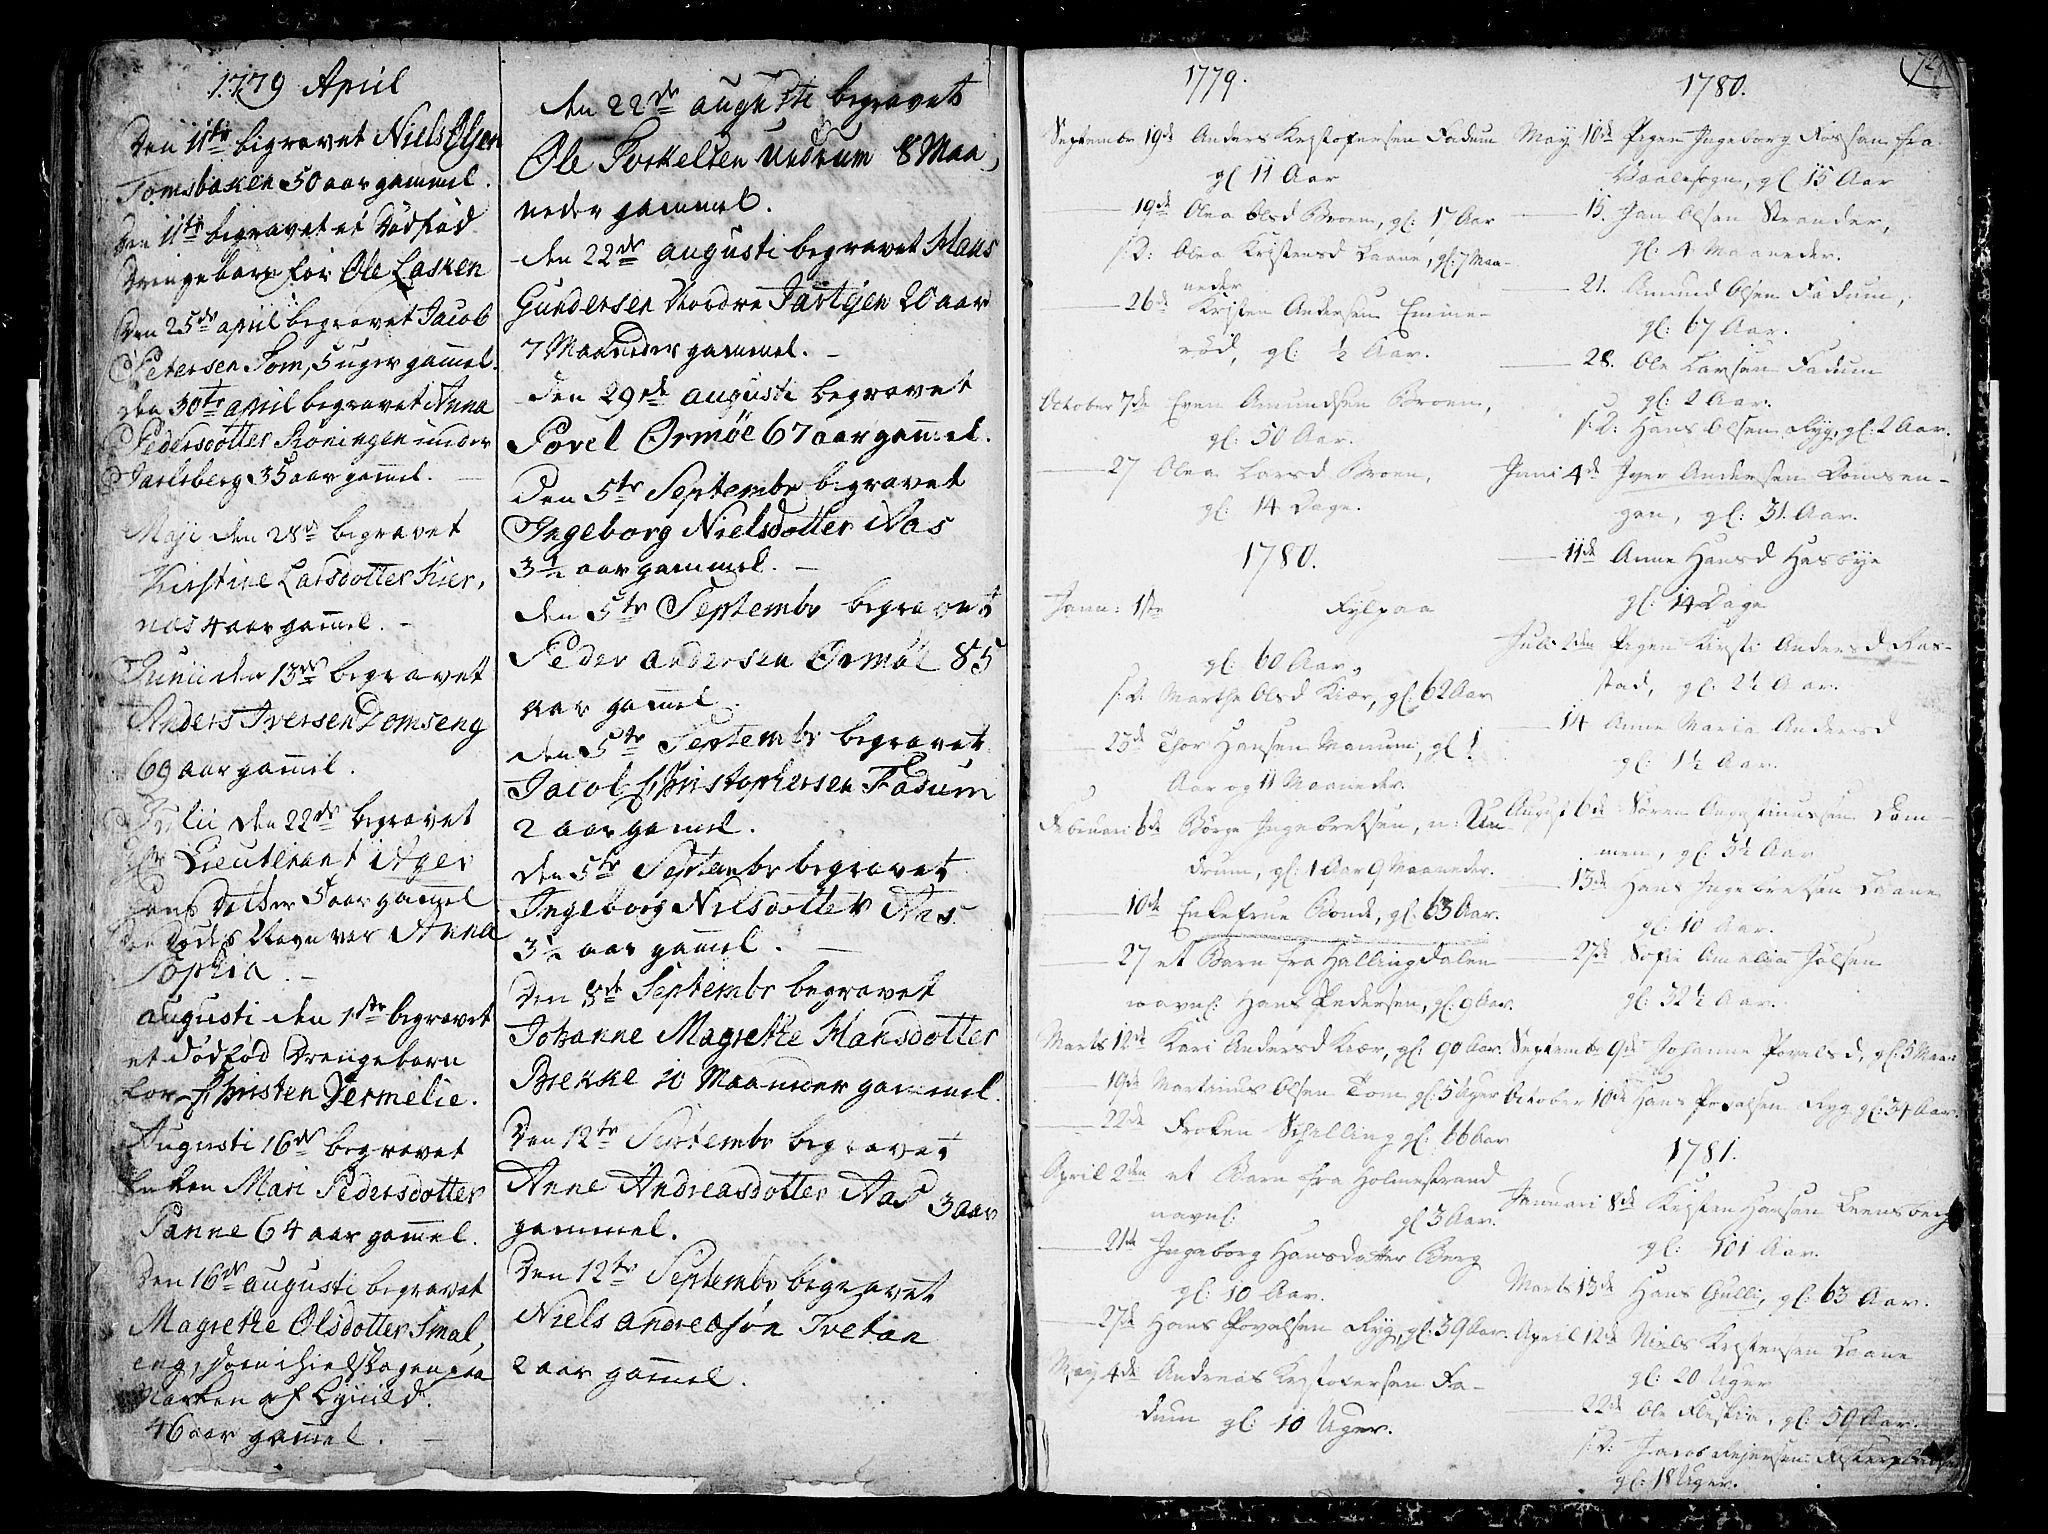 1779 April
Den 11te begravet Niels Olsen
Tomsbakken 50 aar gammel.
Den 11te begravet et Dødfød
Drengebarn for Ole Lasken
Den 25de april begravet Jacob
Petersen Tom, 5 uger gamel.
den 30te april begravet Anna
Pedersdotter Røningen under
Jarlsberg 35 aar gamel.
Maji den 28de begravet
Kirstine Larsdotter Kier,
nos 4 aar gamel.
Junii den 13de begravet
Anders Iversen Domseng
69 aar gamel.
Julii den 22de begravet
Lieutenant Ager
hans Datter 5 aar gamel
Den Dødes Navn var Anna
Sophia.
augusti den 1ste begravet
et dødfød Drengebarn
for Christen Vermelie.
Augusti 16de begravet
Enken Mari Pedersdotter
Panne 64 aar gamel.
Den 16de augusti begravet
Magrethe Olsdotter Smal,
eng, som ihielslagen paa
Marken af Lynild.
46 aar gamel.
den 22de augusti begravet
Ole Torkelsen Undrum 8 Maa,
neder gammel.
den 22de augusti begravet Hans
Gundersen Nordre Jarteen 20 aar
7 Maaneder gammel.
den 29de augusti begravet
Povel Ormøe 67 aar gammel.
Den 5te Septembr begravet
Ingeborg Nielsdotter Aas
3 1/2 aar gammel.
den 5te Septembr begravet
Peder andersen Ormøe 85
aar gamel.
den 5te Septembr begravet
Jacob Christophersen Fadum
2 aar gamel.
den 5te Septembr begravet
Ingeborg Nilsdotter Aas
3 1/2 aar gamel.
Den 8de Septembr begravet
Johanne Magrethe Hansdotter
Brekke 10 Maaneder gammel.
Den 12te Septembr begravet
Anne Andreasdotter Aas 3 aar
gammel.
Den 12te Septembr begravet
Niels andreasøn Tvetan
2 aar gamel.
1779.
Septembr 19de Anders Kristofersen Fadum
gl 11 Aar
19de Olea Olsd Broen, gl: 17 Aar
s. D: Olea Kristensd Laane, gl: 7 Maa-
neder
26de Kristen Andersen Emme-
rød, gl: 1/2 Aar.
October 7de Even Amundsen Broen,
gl: 50 Aar.
27 Olea Larsd Broen,
gl: 14 Dage.
1780.
Janu: 1ste Fylpaa
gl: 60 Aar,
s. D: Marthe Olsd Kiær, gl: 62 Aar
23de Thor Hansen Manum, gl 1
Aar og 11 Maaneder.
Februari 6de Børge Ingebretsen, n: Un-
drum, gl: 1 Aar 9 Maaneder.
10de Enkefrue Bonde, gl: 63 Aar.
27 et Barn fra Hallingdalen
navnl: Hans Pedersen, gl: 9 Aar.
Marts 12te Kari Andersd Kiær, gl: 90 Aar.
19de Martinus Olsen Tom gl: 5 Uger
22de Frøken Schilling gl: 66 Aar
April 2den et Barn fra Holmestrand
navnl: gl 3 Aar.
21de Ingeborg Hansdatter Berg
gl: 10 Aar.
27de Hans Povelsen Ryg, gl: 39 Aar.
May 4de Andreas Kristofersen Fa-
dum gl: 10 Uger.
1780.
May 10de Pigen Ingeborg fra
Vaalesogn, gl: 15 Aar
15. Jan Olsen Strander,
gl: 4 Maaneder.
21. Amund Olsen Fadum,
gl: 67 Aar.
28. Ole Larsen Fadum
gl: 2 Aar.
s. D: Hans Olsen Ryg, gl: 2 Aar.
Juni 4de Iver Andersen Domsen-
gen, gl: 31 Aar.
11de Anne Hansd Hasbye
gl: 14 Dage
Juli 2den Pigen Kirsti Andersd Ras-
stad, gl: 21 Aar.
14 Anne Maria Andersd
gl: 1 1/2 Aar.
August 6de Søren Augustinussen Dom-
men, gl: 3 1/2 Aar
13de Hans Ingebretsen Laane
gl: 10 Aar.
27de Sofie Amalia Jølsen
gl: 32 1/2 Aar.
Septembr 9de Johanne Povelsd, gl: 5 Maan
October 10de Hans Povelsen Ryg gl: 34 Aar.
1781.
Januari 8de Kristen Hansen Leensberg
gl: 101 Aar.
Marts 13de Hans Gulli, gl: 63 Aar.
April 12te Niels Kristensen Laane
gl: 20 Uger
22de Ole Fleskia, gl: 59 Aar.
s. D: Jacob
gl: 18 Uger.